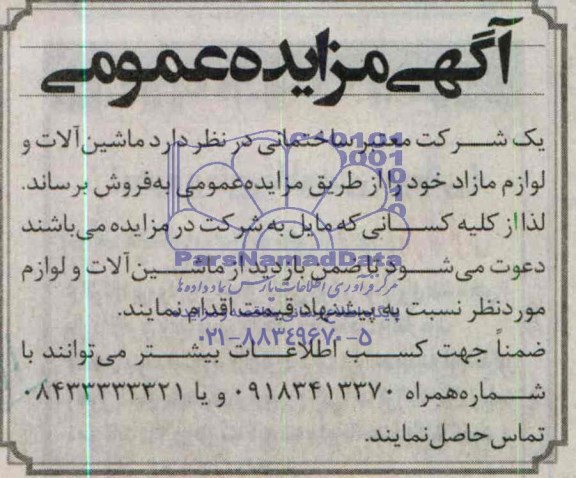 آگهی مزایده عمومی
یک شرکت معتبر ساختمانی در نظر دارد ماشین آلات و
لوازم مازاد خود را از طریق مزایده عمومی به فروش برساند.
لذا از کلیه کسانی که مایل به شرکت در مزایده می باشند
دعوت می شود با ضمن بازدید از ماشین آلات و لوازم
ParsNamadData
مورد نظر نسبت به پیشنهاد قیمت اقدام نمایند.
۰۲۱-۸۸۳۴۹۶۷۰-۵
ضمناً جهت کسب اطلاعات بیشتر می توانند با
شماره همراه ۰۹۱۸۳۴۱۳۳۷۰ و یا ۰۸۴۳۳۳۳۳۳۲۱
تماس حاصل نمایند.